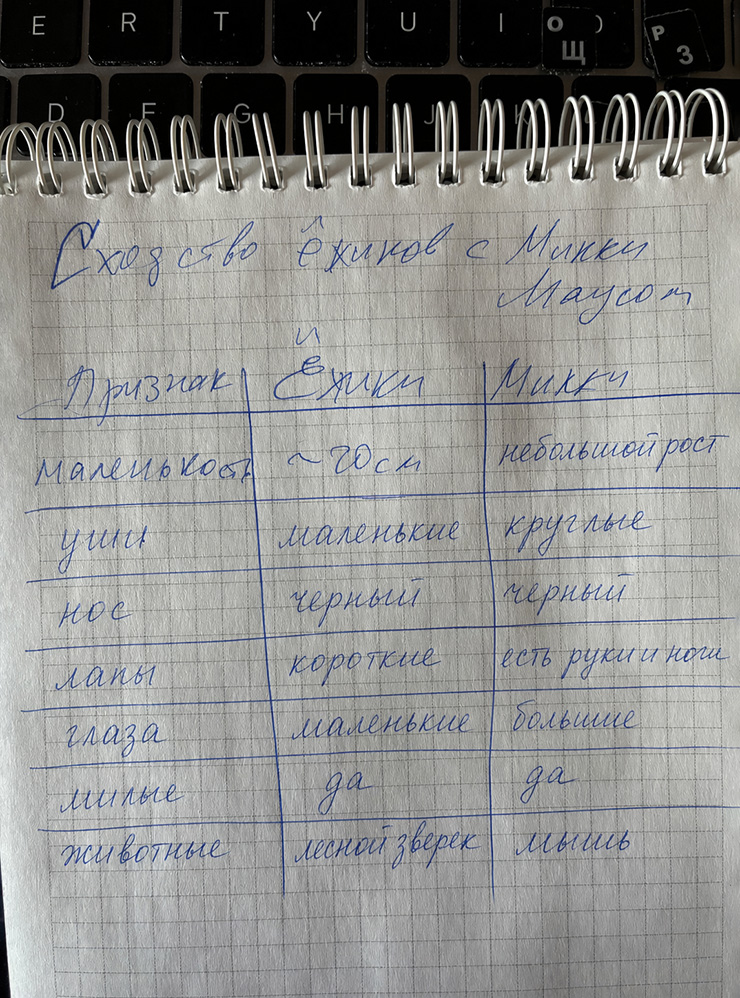 E R T Y U I O Щ Р З
D F G H J K
Сходство ёжиков с Микки
Маусом
Признак Ёжики Микки
маленькость ~20см небольшой рост
уши маленькие круглые
нос черный черный
лапы короткие есть руки и ноги
глаза маленькие большие
милые да да
животные лесной зверек мышь